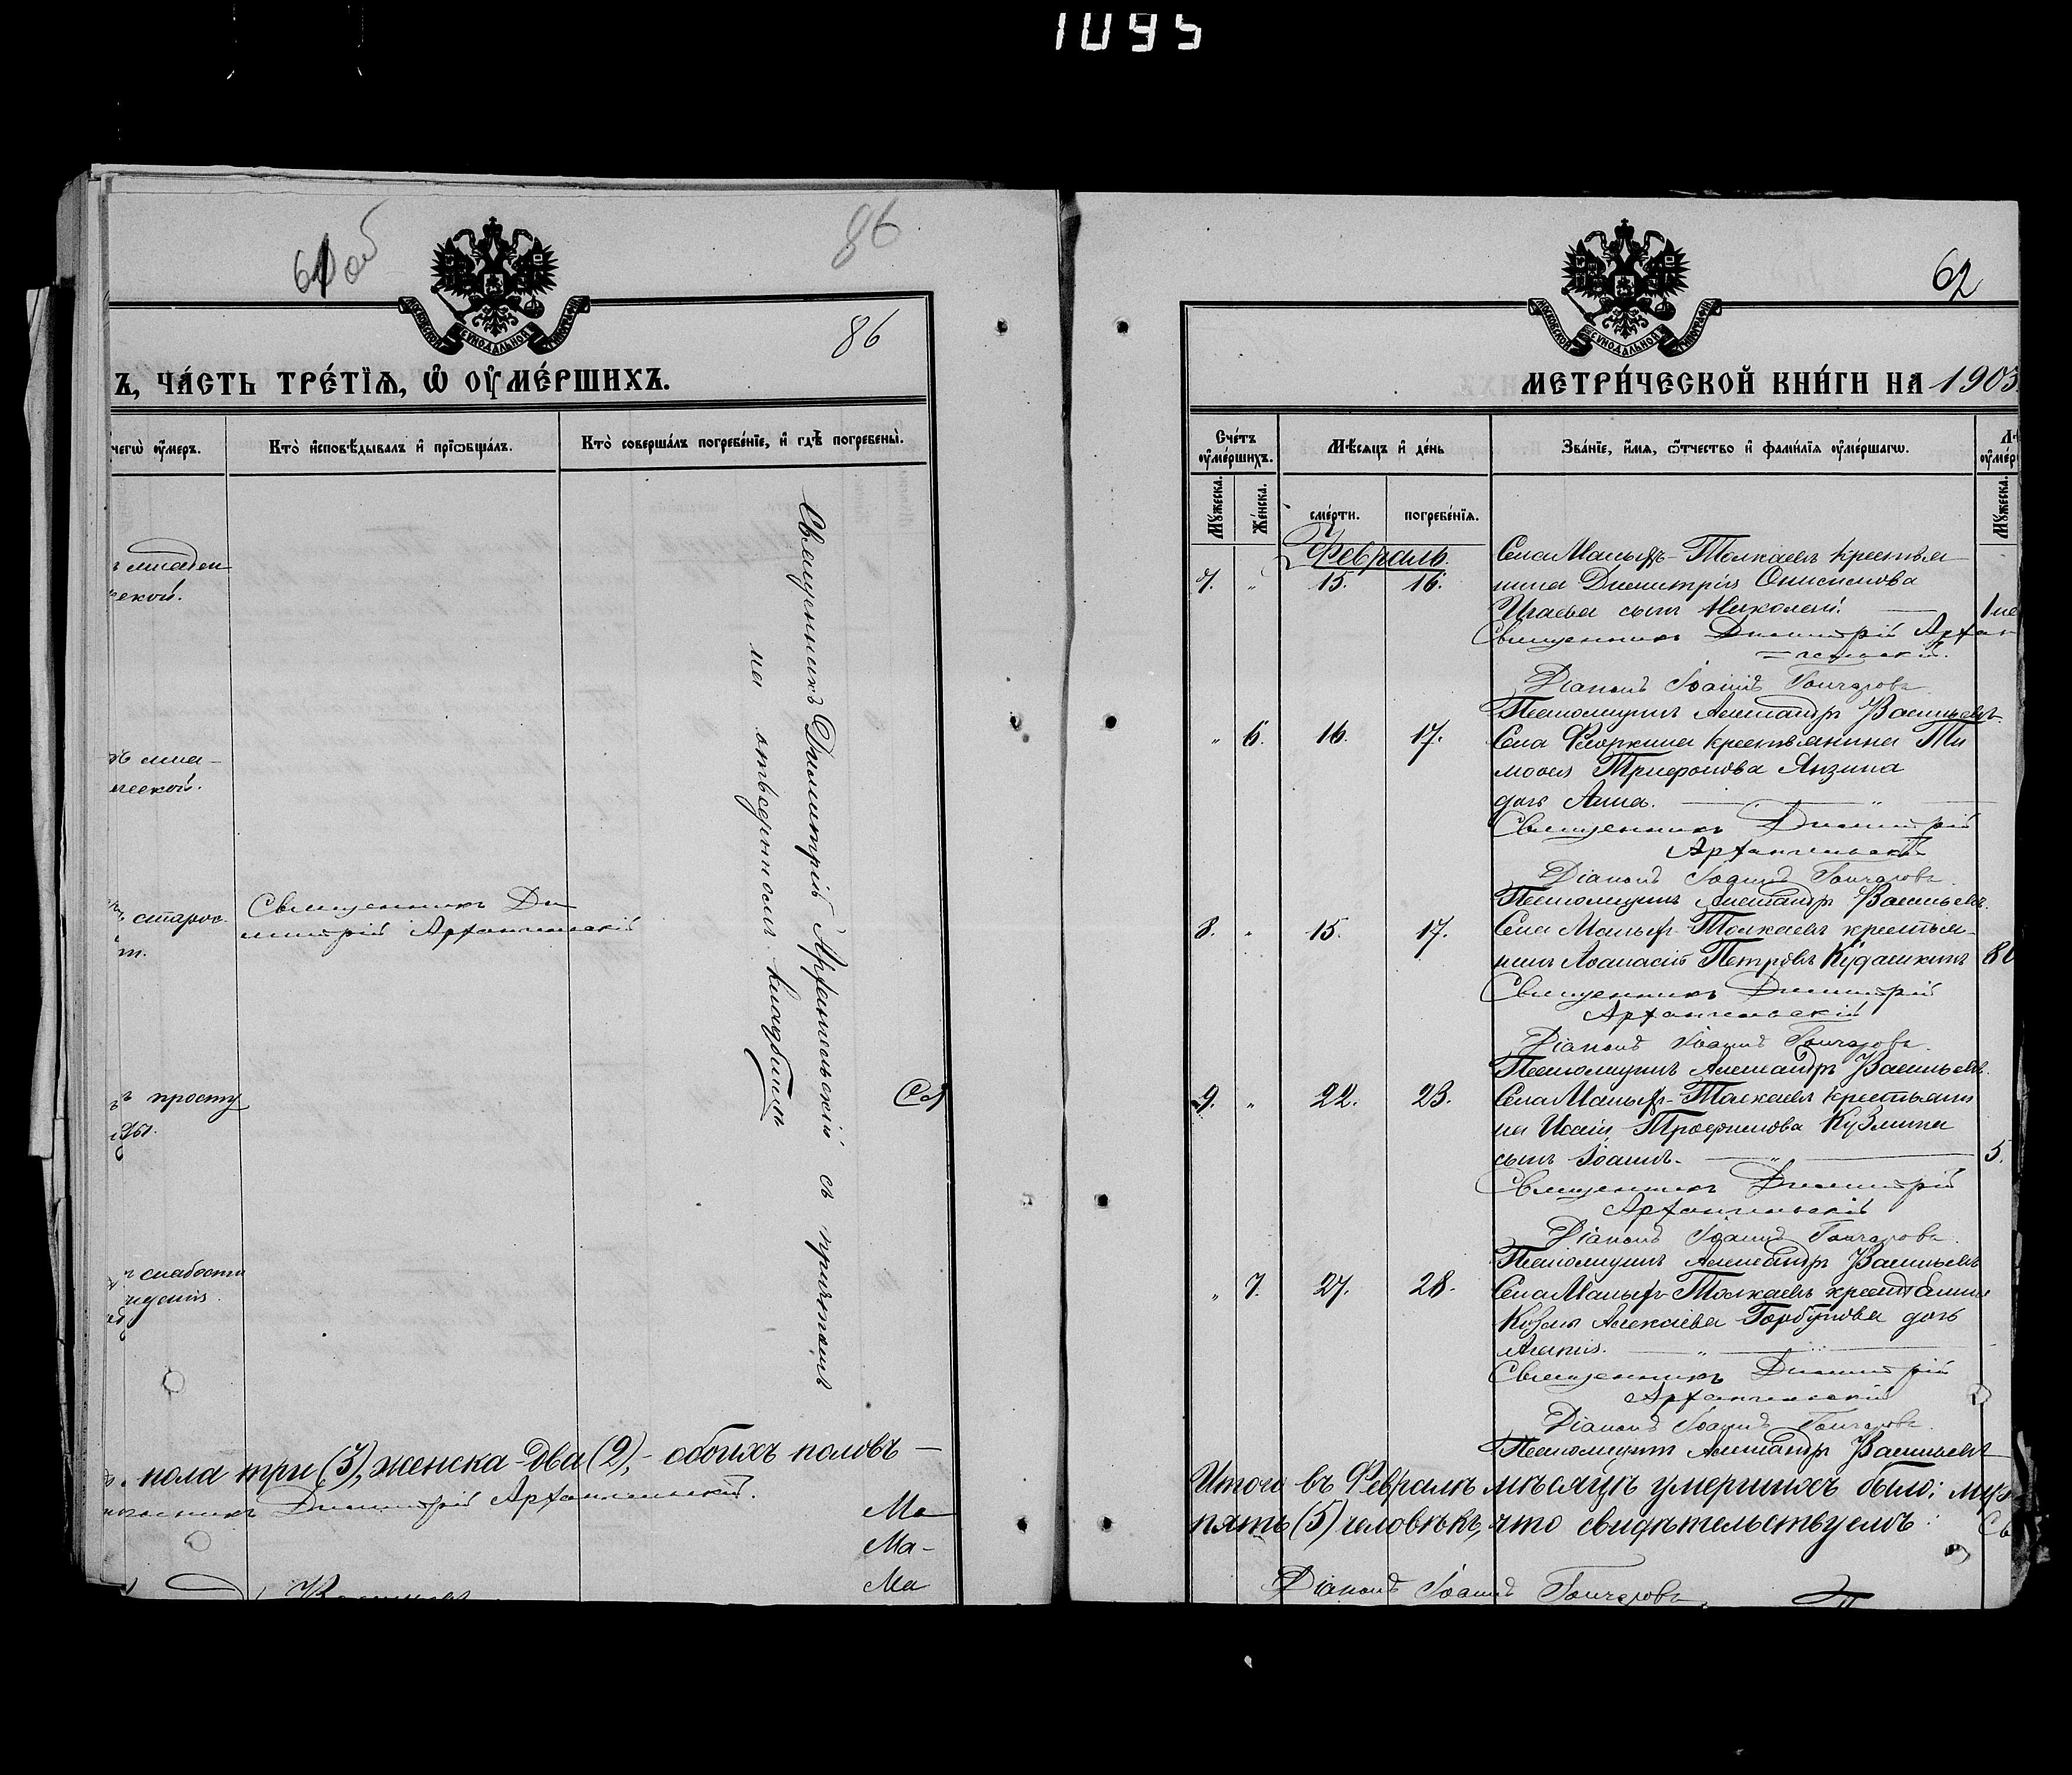 1095
61 об
86
86
Ъ, ЧА́СТЬ ТРЕ́ТІѦ, Ѡ҆ ОУ҆МЕ́РШИХЪ.
чегѡ оу҆́меръ.
Кто̀ и҆сповѣ́дывалъ и҆ прїѡбща́лъ.
Кто̀ соверша́лъ погребе́нїе, и҆ гдѣ̀ погребены̀.
младен
ческой.
мла-
ческой.
старос
ти.
Священникъ Ди
митрій Архангельскій
просту
ды.
слабости
Священникъ Димитрій Архангельскій съ причтомъ
на отведенномъ кладбищѣ
пола три (3), женска два (2), - обоихъ половъ —
Димитрій Архангельскій.
Ма-
Ма-
Ма
Васильевъ
62
МЕТРИ́ЧЕСКОЙ КНИ́ГИ НА 1903
Сче́тъ оу҆ме́ршихъ.
Мѣ́сяцъ и҆ де́нь
Зва́нїе, и҆́мя, ѻ҆́тчество и҆ фами́лїя оу҆ме́ршагѡ.
Мꙋ́жеска.
Же́нска.
сме́рти.
погребе́нїя.
Мꙋ́жеска.
Февраль.
Села Малыхъ-Толкаевъ крестья
7. " 15. 16. нина Димитрія Онисимова
Исаева сынъ Николай. — 1 ме
Священникъ Димитрій Архан
=гельскій.
Діаконъ Іоаннъ Гончаровъ
Псаломщикъ Александръ Васильевъ.
" 6. 16. 17. Села Фёоркина крестьянина Ти
моѳея Трифонова Янзина
дочь Анна. — " —
Священникъ Димитрій
Архангельскій
Діаконъ Іоаннъ Гончаровъ.
Псаломщикъ Александръ Васильевъ.
8. " 15. 17. Села Малыхъ-Толкаевъ крестья-
нинъ Аѳанасій Петровъ Кудашкинъ 80
Священникъ Димитрій
Архангельскій
Діаконъ Іоаннъ Гончаровъ.
Псаломщикъ Александръ Васильевъ.
9. " 22. 23. Села Малыхъ-Толкаевъ крестьяни
на Исаіи Трофимова Кузмина
сынъ Іоаннъ. — " — 5.
Священникъ Димитрій
Архангельскій
Діаконъ Іоаннъ Гончаровъ.
Псаломщикъ Александръ Васильевъ
" 7. 27. 28. Села Малыхъ-Толкаевъ крестьянина
Кузмы Алексѣева Горбунова дочь
Агапія. — " —
Священникъ Димитрій
Архангельскій
Діаконъ Іоаннъ Гончаровъ.
Псаломщикъ Александръ Васильевъ
Итого въ Февралѣ мѣсяцѣ умершихъ было: муж
пять (5) человѣкъ, что свидѣтельствуемъ: Св
Діаконъ Іоаннъ Гончаровъ.